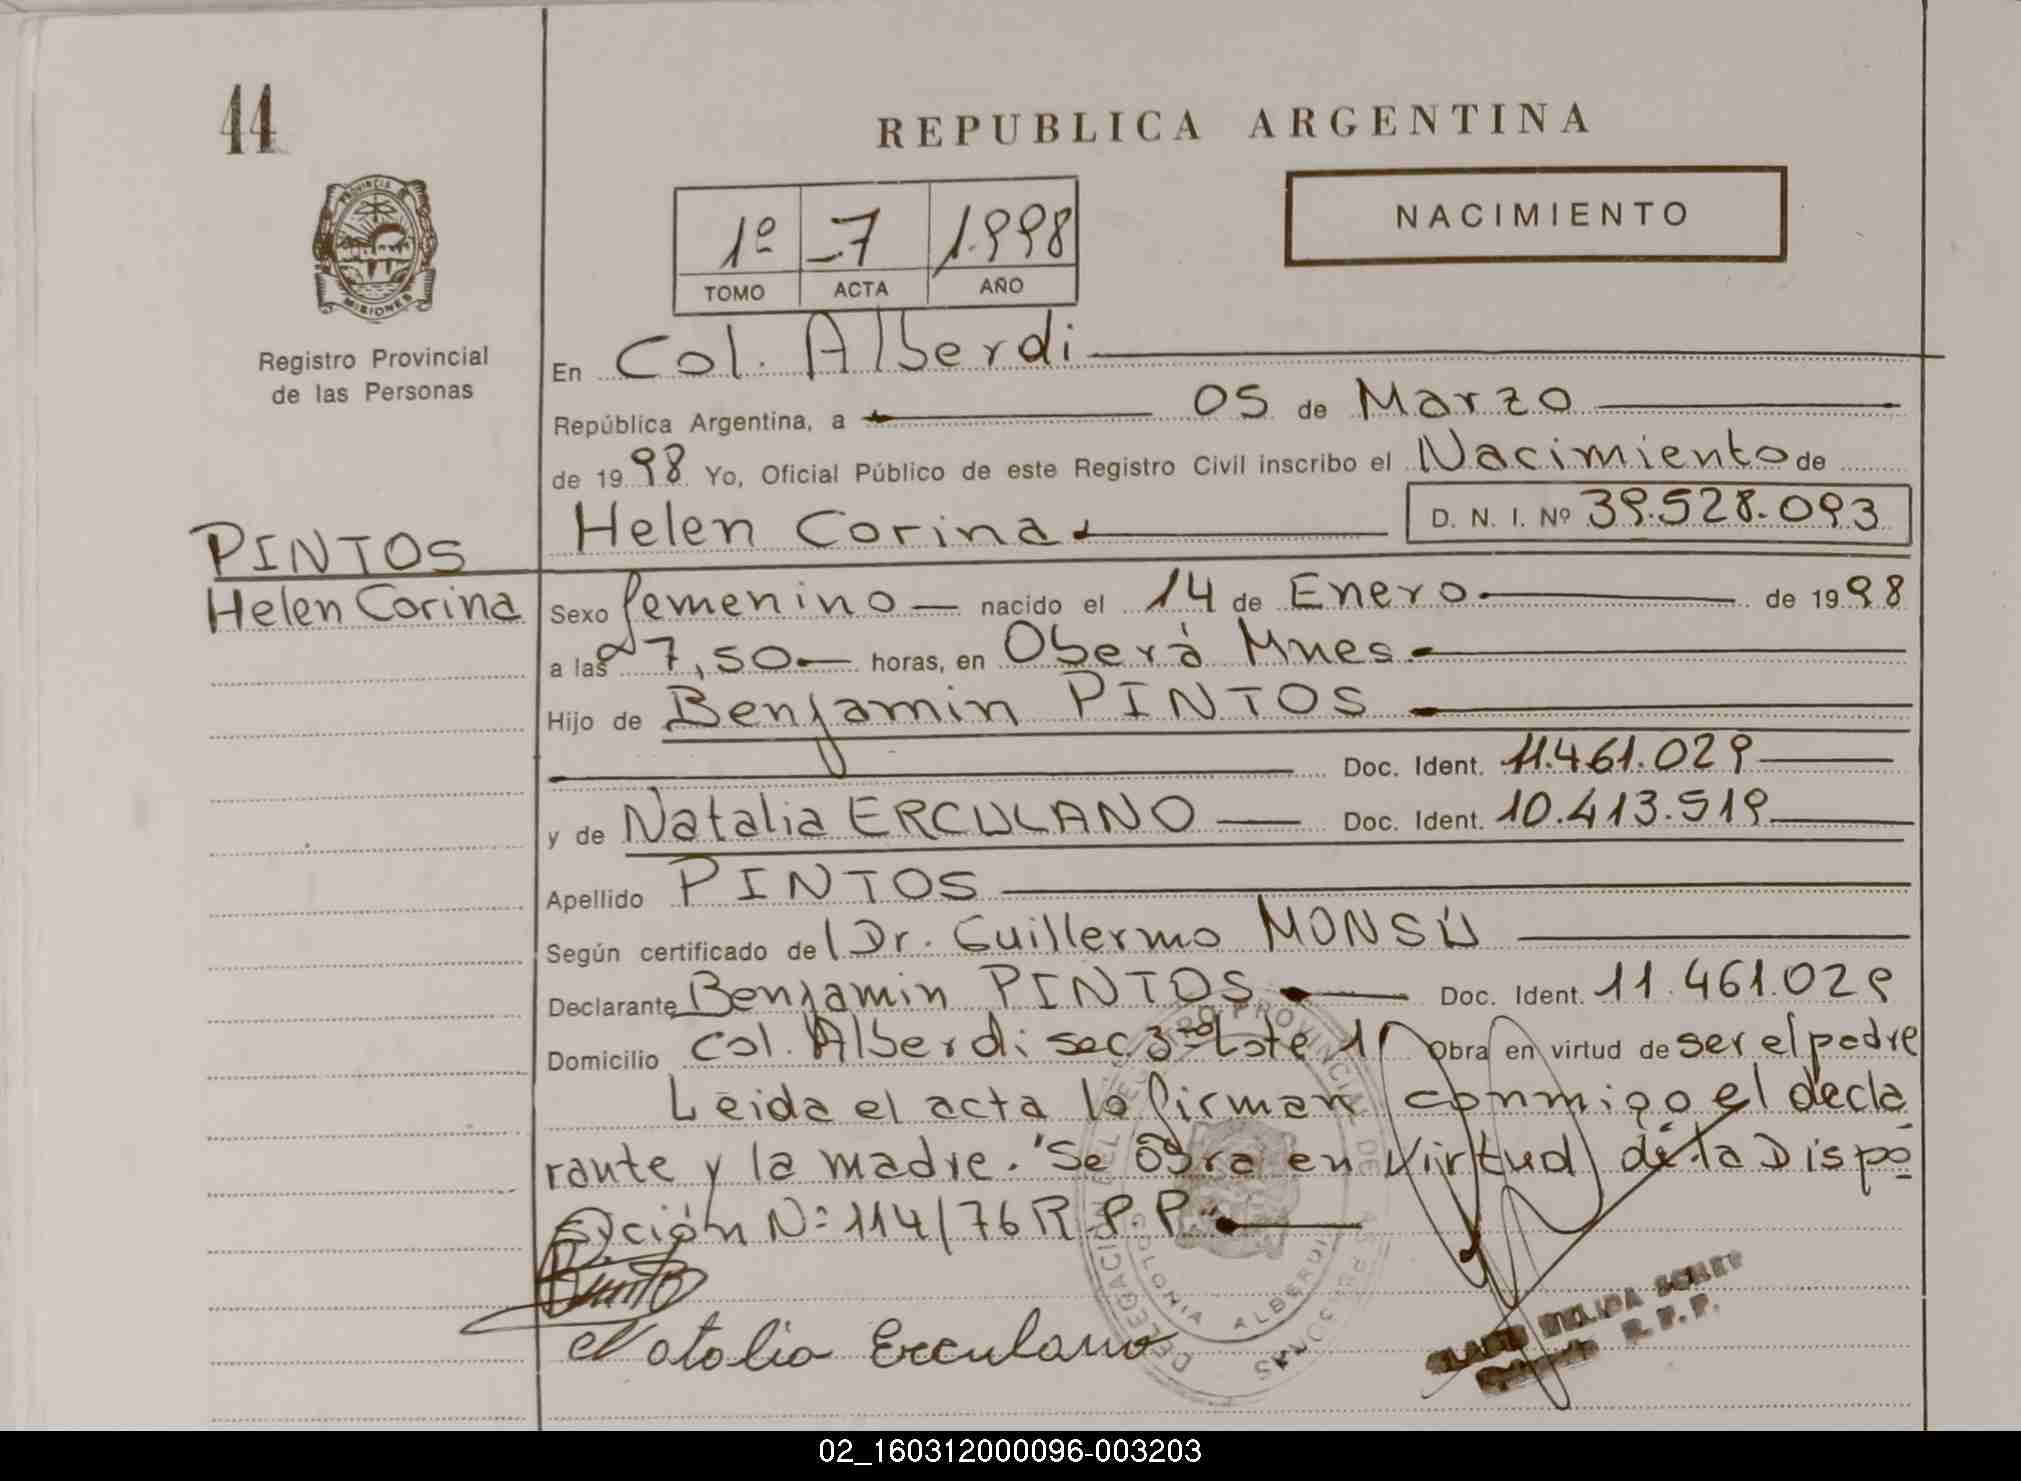 44
REPUBLICA ARGENTINA
NACIMIENTO
1º -7 1.998
TOMO ACTA AÑO
PROVINCIA DE MISIONES
Registro Provincial
de las Personas
En Col. Alberdi
República Argentina, a 05 de Marzo
de 1998 Yo, Oficial Público de este Registro Civil inscribo el Nacimiento de
Helen Corina D. N. I. Nº 39.528.093
PINTOS
Helen Corina
Sexo femenino nacido el 14 de Enero de 1998
a las 7,50 horas, en Oberá Mnes.
Hijo de Benjamin PINTOS
Doc. Ident. 11.461.029
y de Natalia ERCULANO Doc. Ident. 10.413.519
Apellido PINTOS
Según certificado del Dr. Guillermo MONSÚ
Declarante Benjamin PINTOS Doc. Ident. 11.461.029
Domicilio Col. Alberdi sec. 3ra Lote 1 Obra en virtud de ser el padre
Leida el acta la firman conmigo el decla
rante y la madre. "Se Obra en Virtud de la Dispo
sición Nº 114/76 R.P.P."
Natalia Erculano
DELEGACION DEL REGISTRO PROVINCIAL DE LAS PERSONAS
COLONIA ALBERDI
R.P.P.
02_160312000096-003203